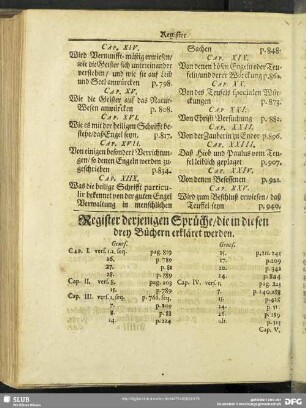 Register
CAP. XIV.
Wird Vernunfft-mäßig erwiesen/
wie die Geister sich untereinander
verstehen/ und wie sie auf Leib
und Seel würcken p.798.
CAP. XV.
Wie die Geister auf das Natur-
Wesen würcken p.808.
CAP. XVI.
Wie es mit der heiligen Schrifft be-
stehe/ daß Engel seyn. p.817.
CAP. XVII.
Von einigen besondern Verrichtun-
gen/ so denen Engeln werden zu-
geschrieben p.834.
CAP. XIIX.
Was die heilige Schrifft particu-
lir bekennet von der guten Engel
Verwaltung in menschlichen
Sachen p.848.
CAP. XIX.
Von denen bösen Engeln oder Teu-
feln/ und derer Würckung p.862.
CAP. XX.
Von des Teufels specialen Wür-
ckungen p.873.
CAP. XXI.
Von Christi Versuchung p.882.
CAP. XXII.
Von der Zauberin zu Endor p.896.
CAP. XXIII.
Daß Hiob und Paulus vom Teu-
fel leiblich geplaget p.907.
CAP. XXIV.
Von denen Besessenen p.922.
CAP. XXV.
Wird zum Beschluß erwiesen/ daß
Teuffel seyn p.940.
Register derjenigen Sprüche/ die in diesen
drey Büchern erkläret werden.
Genes.
Cap. I. vers. 12. seq. pag. 819
26. p. 789
27. p. 81
28. p. 189
Cap. II. vers. 8. pag. 209
15. p. 789
Cap. III. vers. 1. seq. p. 768. seq.
7. p. 209
8. p. 88
14. p. 224
Genes.
15. p. 211. 245
17. p. 209
20. p. 342
24. p. 824
Cap. IV. vers. 1. pag. 221
7. p. 140. 288
15. p. 428
Cap. V.